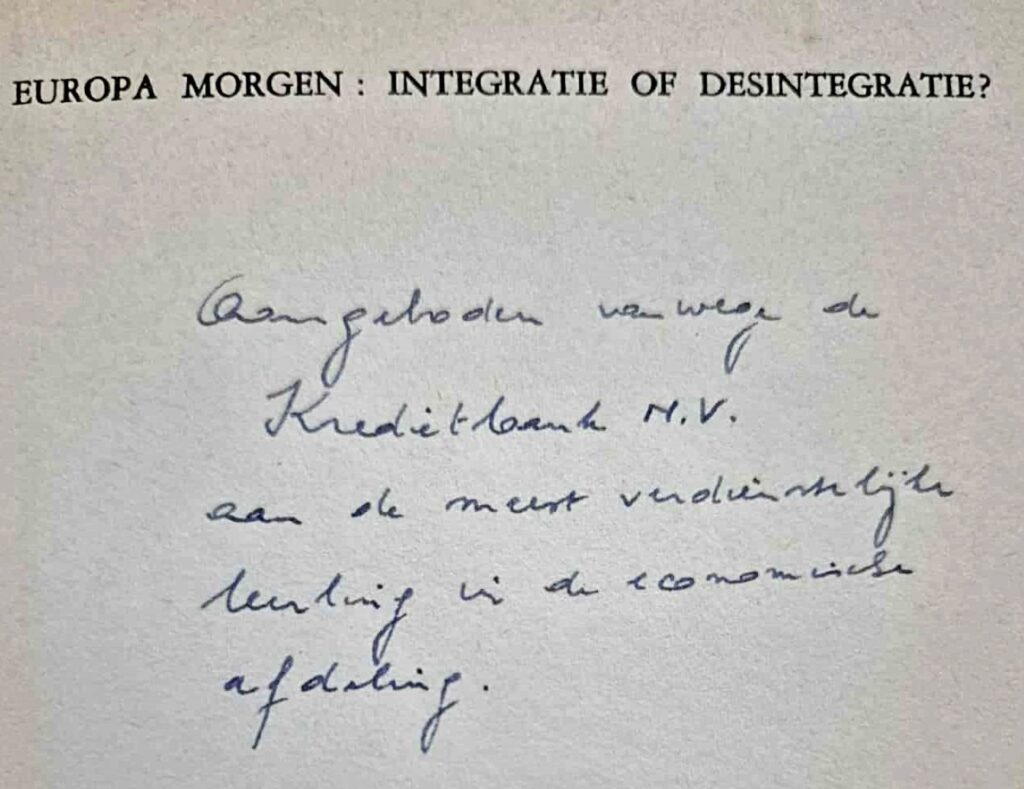 EUROPA MORGEN : INTEGRATIE OF DESINTEGRATIE?
Aangeboden vanwege de
Kredietbank N.V.
aan de meest verdienstelijke
leerling in de economische
afdeling.